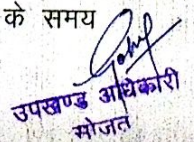 के समय
उपखण्ड अधिकारी
सोजत